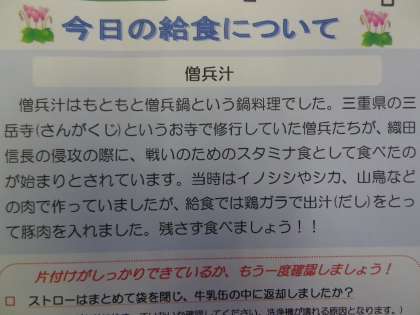 今日の給食について
僧兵汁
僧兵汁はもともと僧兵鍋という鍋料理でした。三重県の三
岳寺(さんがくじ)というお寺で修行していた僧兵たちが、織田
信長の侵攻の際に、戦いのためのスタミナ食として食べたの
が始まりとされています。当時はイノシシやシカ、山鳥など
の肉で作っていましたが、給食では鶏ガラで出汁(だし)をとっ
て豚肉を入れました。残さず食べましょう!!
片付けがしっかりできているか、もう一度確認しましょう!
□ ストローはまとめて袋を閉じ、牛乳缶の中に返却しましたか?
ないか確認してください。洗浄機が壊れる原因となります。)